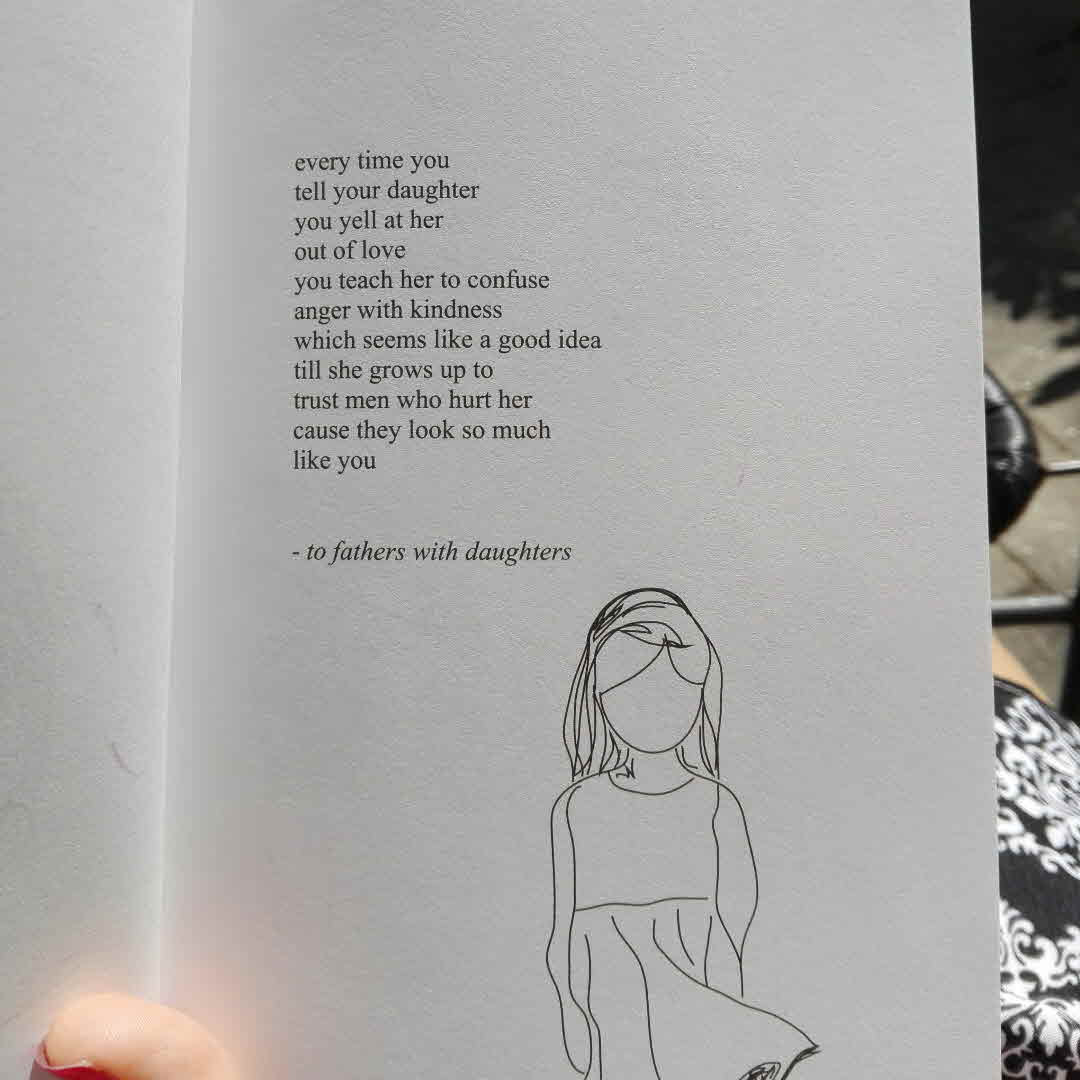 every time you
tell your daughter
you yell at her
out of love
you teach her to confuse
anger with kindness
which seems like a good idea
till she grows up to
trust men who hurt her
cause they look so much
like you
- to fathers with daughters